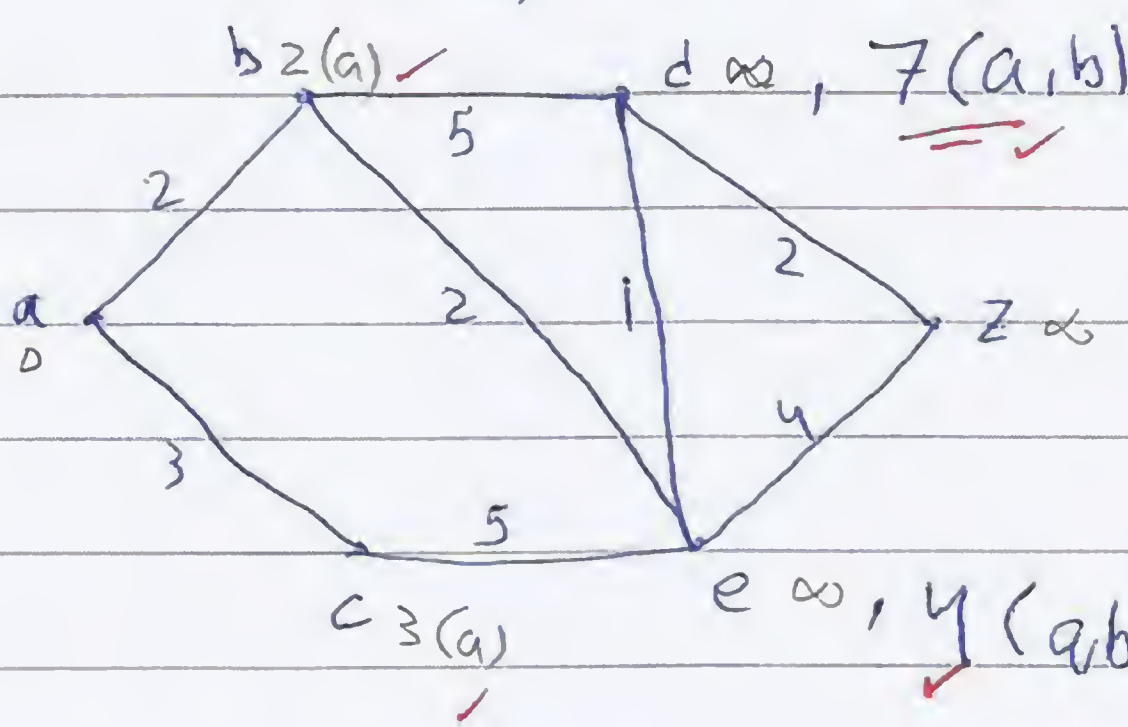 b 2(a) d ∞, 7(a,b)
5
2
2
a 2 1 z ∞
0
4
3
5
c 3(a) e ∞, 4(a,b